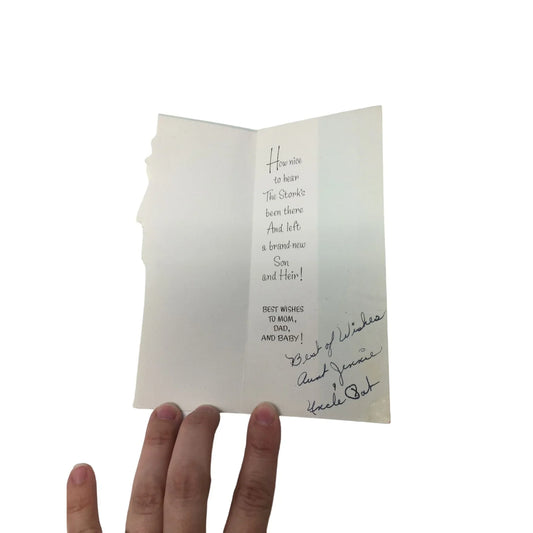 How nice
to hear
The Stork's
been there
And left
a brand-new
Son
and Heir!
BEST WISHES
TO MOM,
DAD,
AND BABY!
Best of Wishes
Aunt Jennie
&
Uncle Pat